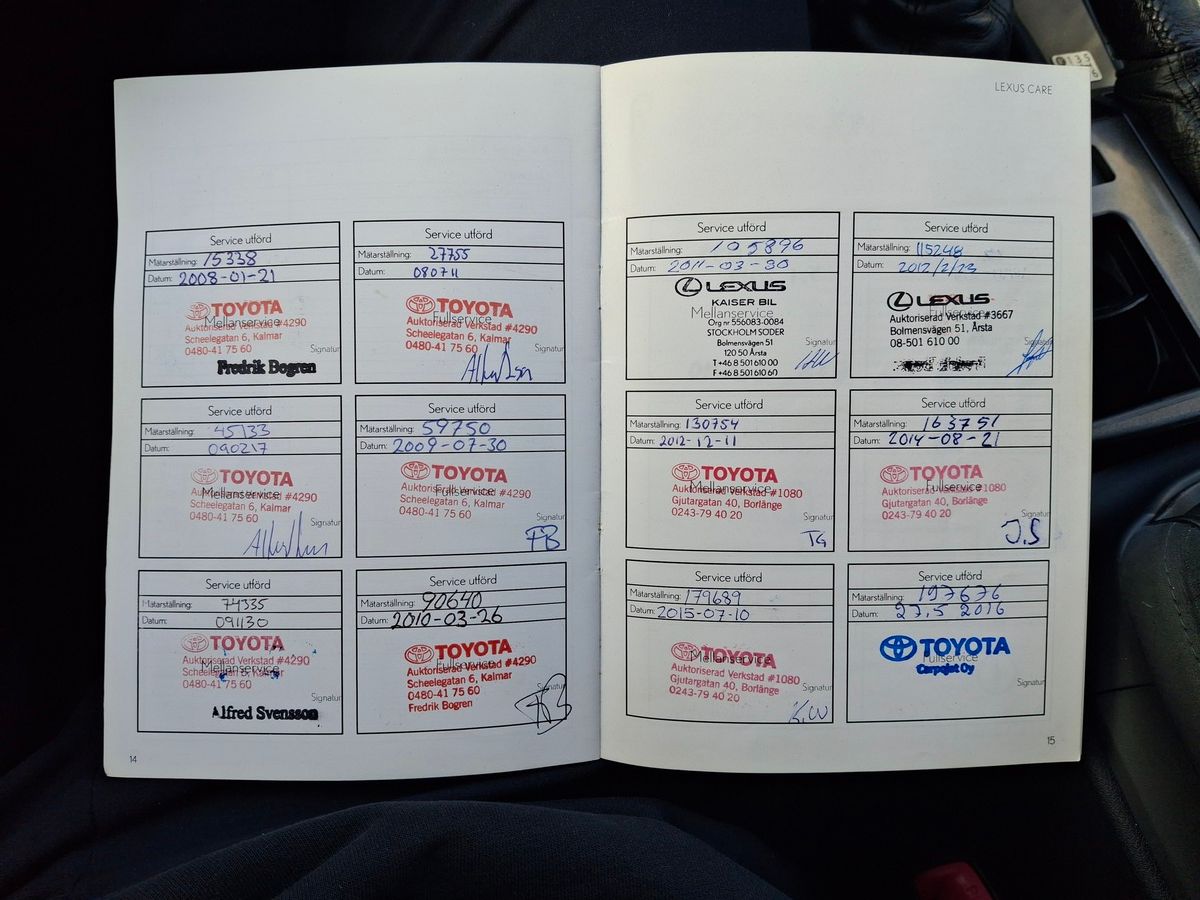 Service utförd
Mätarställning: 15338
Datum: 2008-01-21
TOYOTA
Mellanservice
Auktoriserad Verkstad #4290
Scheelegatan 6, Kalmar
0480-41 75 60
Signatur
Fredrik Bogren
Service utförd
Mätarställning: 27755
Datum: 080711
TOYOTA
Fullservice
Auktoriserad Verkstad #4290
Scheelegatan 6, Kalmar
0480-41 75 60
Signatur
Service utförd
Mätarställning: 45133
Datum: 090217
TOYOTA
Mellanservice
Auktoriserad Verkstad #4290
Scheelegatan 6, Kalmar
0480-41 75 60
Signatur
Service utförd
Mätarställning: 59750
Datum: 2009-07-30
TOYOTA
Fullservice
Auktoriserad Verkstad #4290
Scheelegatan 6, Kalmar
0480-41 75 60
Signatur
FB
Service utförd
Mätarställning: 74335
Datum: 091130
TOYOTA
Mellanservice
Auktoriserad Verkstad #4290
Scheelegatan 6, Kalmar
0480-41 75 60
Signatur
Alfred Svensson
Service utförd
Mätarställning: 90640
Datum: 2010-03-26
TOYOTA
Fullservice
Auktoriserad Verkstad #4290
Scheelegatan 6, Kalmar
0480-41 75 60
Fredrik Bogren
Signatur
FB
14
LEXUS CARE
Service utförd
Mätarställning: 105896
Datum: 2011-03-30
LEXUS
KAISER BIL
Mellanservice
Org nr 556083-0084
STOCKHOLM SÖDER
Bolmensvägen 51
120 50 Årsta
T +46 8 501 610 00
F +46 8 501 610 60
Signatur
Service utförd
Mätarställning: 115248
Datum: 2012/2/23
LEXUS
Fullservice
Auktoriserad Verkstad #3667
Bolmensvägen 51, Årsta
08-501 610 00
Signatur
Service utförd
Mätarställning: 130754
Datum: 2012-12-11
TOYOTA
Mellanservice
Auktoriserad Verkstad #1080
Gjutargatan 40, Borlänge
0243-79 40 20
Signatur
TG
Service utförd
Mätarställning: 163751
Datum: 2014-08-21
TOYOTA
Fullservice
Auktoriserad Verkstad #1080
Gjutargatan 40, Borlänge
0243-79 40 20
Signatur
J.S
Service utförd
Mätarställning: 179689
Datum: 2015-07-10
TOYOTA
Mellanservice
Auktoriserad Verkstad #1080
Gjutargatan 40, Borlänge
0243-79 40 20
Signatur
K.W
Service utförd
Mätarställning: 197676
Datum: 27.5 2016
TOYOTA
Fullservice
Carpajat Oy
Signatur
15